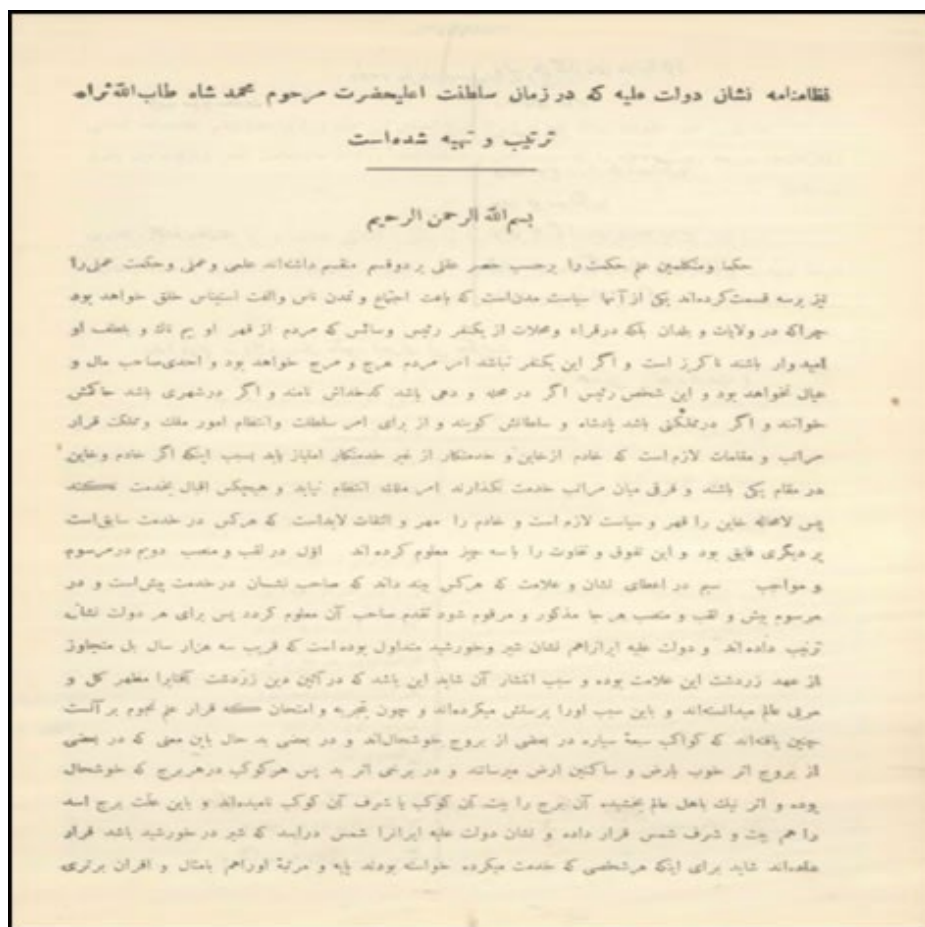 نظامنامه نشان دولت علیه که در زمان سلطنت اعلیحضرت مرحوم محمد شاه طاب‌الله‌ثراه
ترتیب و تهیه شده‌است
بسم‌الله الرحمن الرحیم
حکما ومتکلمین علم حکمت را برحسب حصر عقلی بر دوقسم منقسم داشته‌اند علمی وعملی وحکمت عملی را
نیز برسه قسمت‌کرده‌اند یکی از آنها سیاست مدن‌است که باعث اجتماع و تمدن ناس والفت استیناس خلق خواهد بود
چراکه در ولایات و بلدان بلکه درقراء ومحلات از یکنفر رئیس وسائس که مردم از قهر او بیم ناك و بلطف او
امیدوار باشند ناگزیر است و اگر این یکنفر نباشد امر مردم هرج و مرج خواهد بود و احدی‌صاحب مال و
عیال نخواهد بود و این شخص رئیس اگر در محله و دهی باشد کدخداش نامند و اگر درشهری باشد حاکمش
خوانند و اگر درمملکتی باشد پادشاه و سلطانش گویند و از برای امر سلطنت وانتظام امور ملك ومملکت قرار
مراتب و مقامات لازم‌است که خادم ازخاین و خدمتکار از غیر خدمتکار امتیاز یابد بسبب اینکه اگر خادم وخاین
در مقام یکی باشند و فرقی میان مراتب خدمت نگذارند امر ملك انتظام نیابد و هیچکس اقبال بخدمت نکند
پس لامحاله خاین را قهر و سیاست لازم است و خادم را مهر و التفات لابداست که هرکس در خدمت سابق‌است
بر دیگری فایق بود و این تفوق و تفاوت را باسه چیز معلوم کرده اند اول در لقب و منصب دویم درمرسوم
و مواجب سیم در اعطای نشان و علامت که هرکس بیند داند که صاحب نشان درخدمت پیش‌است و در
مرسوم بیش و لقب و منصب هر جا مذکور و مرقوم شود تقدم صاحب آن معلوم گردد پس برای هر دولت نشانی
ترتیب داده‌اند و دولت علیه ایرانراهم نشان شیر وخورشید متداول بوده‌است که قریب سه هزار سال بل متجاوز
از عهد زردشت این علامت بوده و سبب انتشار آن شاید این باشد که درآئین دین زردشت آفتابرا مظهر کل و
مربی عالم میدانسته‌اند و باین سبب اورا پرستش میکرده‌اند و چون بتجربه و امتحان که قرار علم نجوم برآنست
چنین یافته‌اند که کواکب سبعهٔ سیاره در بعضی از بروج خوشحال‌اند و در بعضی بد حال باین معنی که در بعضی
از بروج اثر خوب بارض و ساکنین ارض میرسانند و در برخی اثر بد پس هرکوکب درهربرج که خوشحال
بوده و اثر نیك باهل عالم بخشیده آن برج را بیت آن کوکب یا شرف آن کوکب نامیده‌اند و باین علت برج اسد
را هم بیت و شرف شمس قرار داده و نشان دولت علیه ایرانرا شمس دراسد که شیر درخورشید باشد قرار
داده‌اند شاید برای اینکه هرشخصی که خدمت میکرده خواسته بودند پایه و مرتبهٔ اوراهم بامثال و اقران برتری